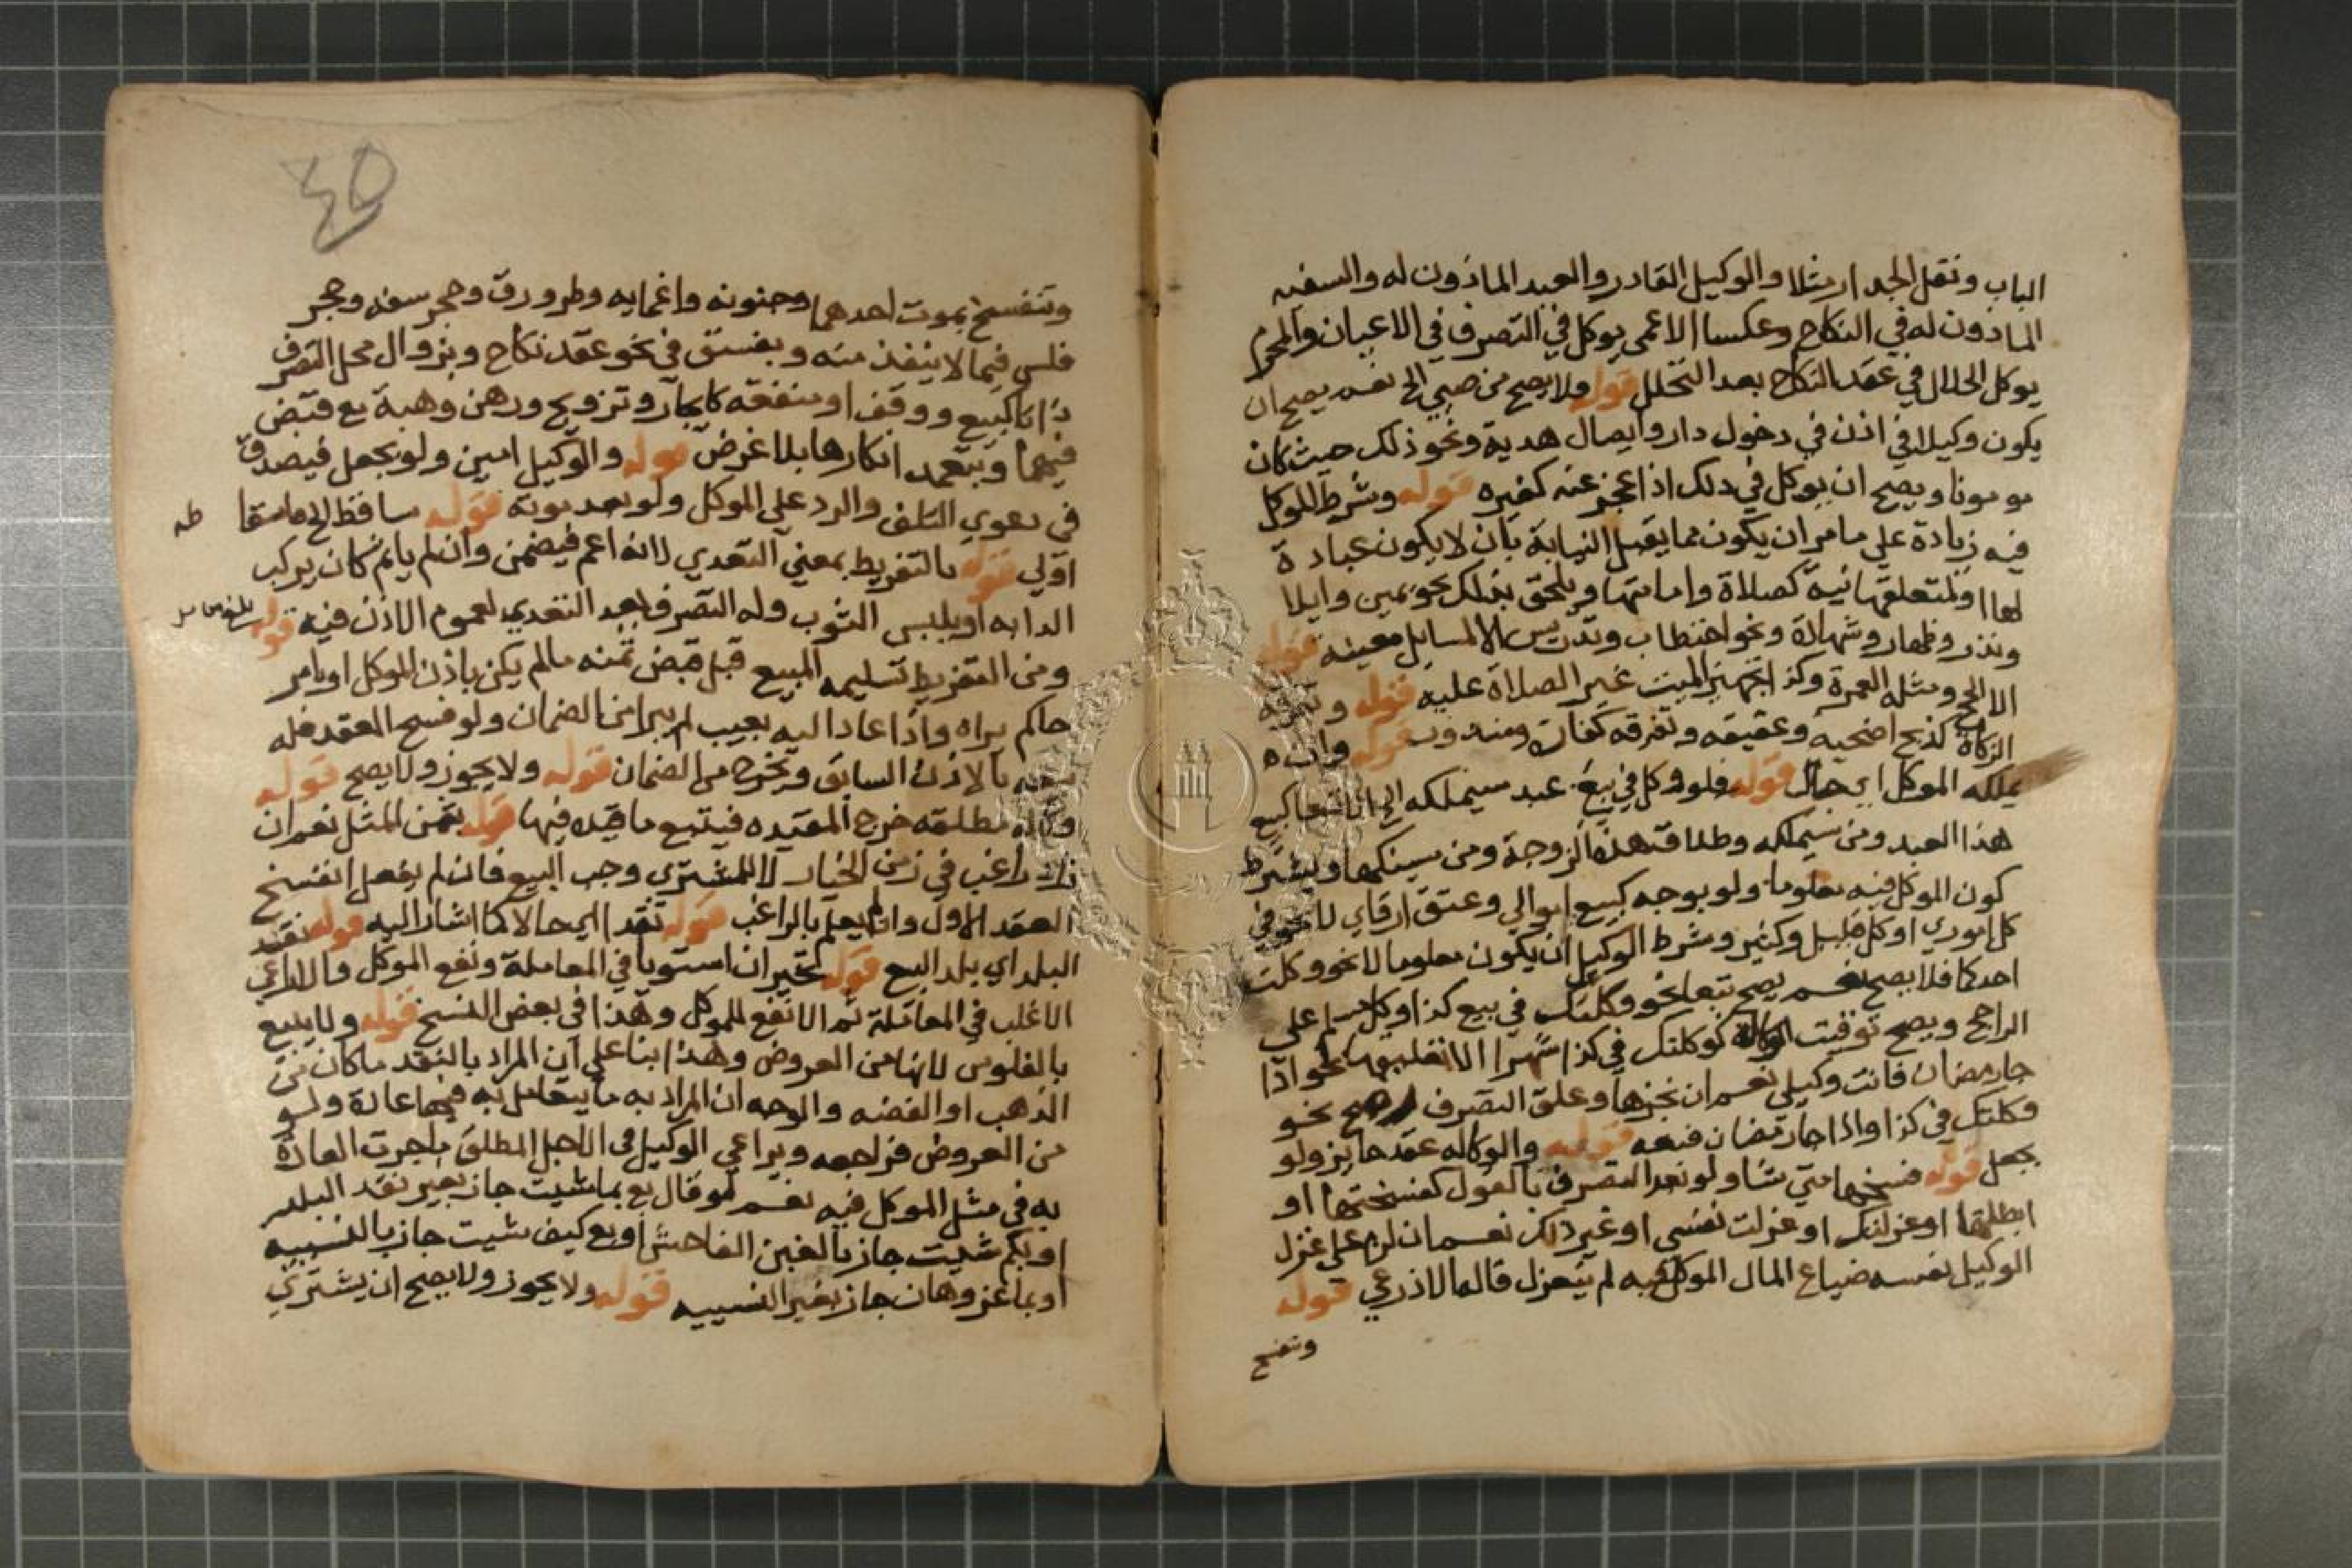 الباب ونقل الجدار مثلا والوكيل القادر والعبد الماذون له والسفيه
الماذون له في النكاح وعكسا الاعمى يوكل في التصرف في الاعيان والمحرم
يوكل الحلال في عقد النكاح بعد التحلل قوله ولا يصح من صبي الخ نعم يصح ان
يكون وكيلا في اذن في دخول دار وايصال هدية ونحو ذلك حيث كان
مومونا ويصح ان يوكل في ذلك اذا عجز عنه كغيره قوله وشرط الموكل
فيه زيادة على ما مر ان يكون مما يقبل النيابة بان لا يكون عبادة
لها او لمتعلقها نية كصلاة وامامتها ويلحق بذلك نحو يمين وايلا
ونذر وظهار وشهادة ونحو اختطاب وتدريس الا لمسايل معينة قوله
الا الحج ومثله العمرة وكذا تجهيز الميت غير الصلاة عليه قوله وتفرقة
الزكاة كذبح اضحيه وعقيقه وتفرقه كفارة ومنذور قوله وان
يملكه الموكل اي حال قوله فلو وكل في بيع عبد سيملكه اي اما تبعا كبيع
هذا العبد ومن سيملكه وطلاق هذه الزوجة ومن سينكحها ويشترط
كون الموكل فيه معلوما ولو بوجه كبيع اموالي وعتق ارقاي لا نحو في
كل اموري او كل قليل وكثير وشرط الوكيل ان يكون معلوما لا نحو وكلت
احدكما فلا يصح نعم يصح تبعا نحو وكلتك في بيع كذا وكل مسلم على
الراجح ويصح توقيت الوكالة كوكلتك في كذا شهرا لا تعليقها كنحو اذا
جا رمضان فانت وكيلي نعم ان نجزها وعلق التصرف صح نحو
وكلتك في كذا واذا جا رمضان فبعه قوله والوكاله عقد جايز ولو
بجعل قوله فسخها متي شا ولو بعد التصرف بالقول كفسختها او
ابطلتها او عزلتك او عزلت نفسي او غير ذلك نعم ان لزم على عزل
الوكيل نفسه ضياع المال الموكل فيه لم ينعزل قاله الاذرعي قوله
وتنفسخ
٤٥
وتنفسخ بموت احدهما وجنونه واغمايه وطرو رق وحجر سفه وحجر
فلس فيما لا ينفذ منه وبفسق في نحو عقد نكاح وبزوال محل التصرف
ذاتا كبيع ووقف او منفعة كايجار وتزويج ورهن وهبة مع قبض
فيهما وبتعمد انكارها بلا غرض قوله والوكيل امين ولو بجعل فيصدق
في دعوي التلف والرد على الموكل ولو بعد موته قوله ساقط الخ
اولى قوله بالتفريط بمعني التعدي لانه اعم فيضمن وان لم ياثم كان يركب
الدابه او يلبس الثوب وله التصرف بعد التعدي لعموم الاذن فيه قوله
ومن التفريط تسليمه المبيع قبل قبض ثمنه ما لم يكن باذن الموكل او بامر
حاكم يراه واذا عاد اليه بعيب لم يبرا من الضمان ولو فسخ العقد فله
بيعه بالاذن السابق ويخرج من الضمان قوله ولا يجوز ولا يصح قوله
وكالة مطلقه خرج المقيده فيتبع ما قيد فيها قوله بثمن المثل نعم ان
زاد راغب في زمن الخيار لا للمشتري وجب البيع فان لم يفعل انفسخ
العقد الاول وان لم يعلم بالراغب قوله نقدا اي حالا كما اشار اليه قوله بنقد
البلد اي بلد البيع قوله تخير ان استويا في المعاملة ونفع الموكل والا راعي
الاغلب في المعاملة ثم الانفع للموكل وهذا في بعض النسخ قوله ولا يبيع
بالفلوس لانها من العروض وهذا بنا علي ان المراد بالنقد ما كان من
الذهب او الفضه والوجه ان المراد به ما يتعامل به فيها عادة ولو
من العروض فراجعه ويراعي الوكيل في الاجل المطلق ما جرت العادة
به في مثل الموكل فيه نعم لو قال بع بما شيت جاز بغير نقد البلد
او بكم شيت جاز بالغبن الفاحش او بع كيف شيت جاز بالنسييه
او بما عز وهان جاز بغير النسييه قوله ولا يجوز ولا يصح ان يشتري